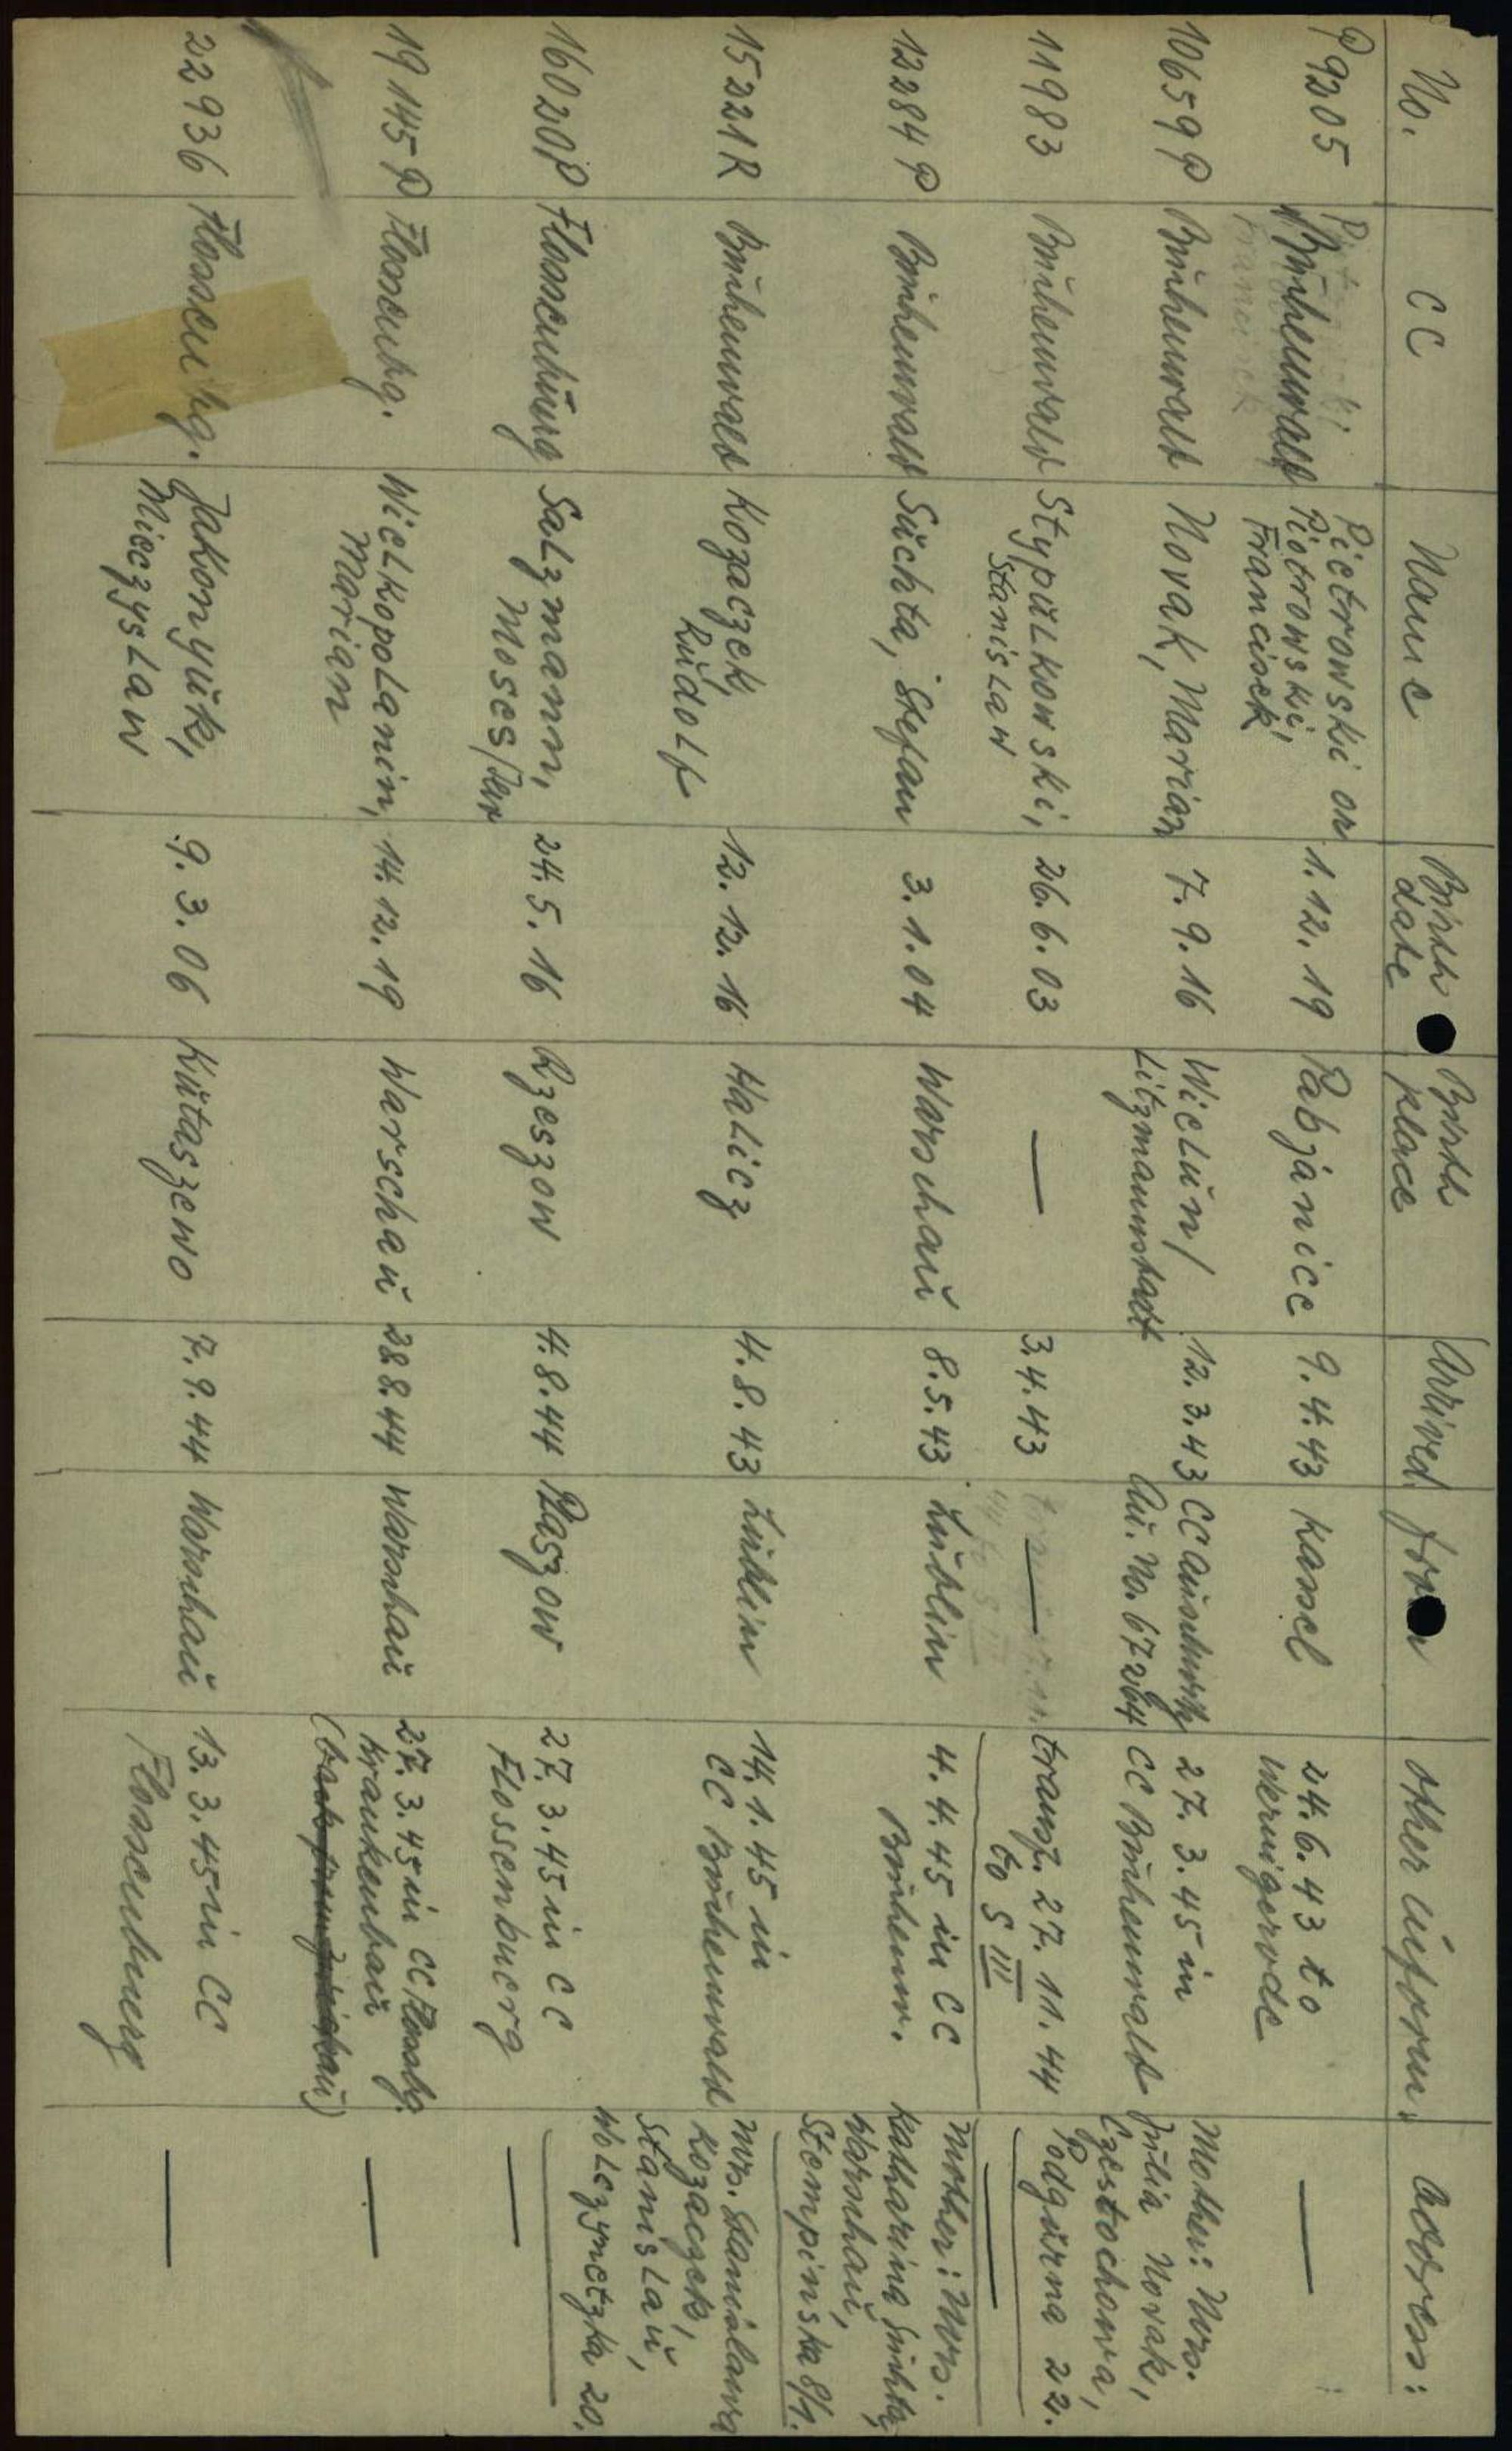 No. CC Name Birth date Birth place Arrived from other inform: Adress:
P 9205 Buchenwald Pietrowski or Piotrowski, Francisek 1.12.19 Pabjanice 9.4.43 Kassel 24.6.43 to Wernigerode —
10659 P Buchenwald Novak, Marian 7.9.16 Wieluń/ Litzmannstadt 12.3.43 CC Auschwitz Au. No. 67264 27.3.45 in CC Buchenwald Mother: Mrs. Julia Novak, Czestochowa, Podgurna 22.
11983 Buchenwald Stypułkowski, Stanisław 26.6.03 — 3.4.43 — transp. 27.11.44 to S III —
12284 P Buchenwald Suchta, Stefan 3.1.04 Warschau 8.5.43 Lublin 4.4.45 in CC Buchenw. Mother: Mrs. Katharina Suchta, Warschau, Stempińska 8/1.
15221 R Buchenwald Kozaczek, Rudolf 12.12.16 Halicz 4.8.43 Lublin 14.1.45 in CC Buchenwald Mrs. Stanislawa Kozaczek, Stanisłau, Wolczynetzka 20.
16020 P Flossenbürg Salzmann, Moses/Isr 24.5.16 Rzeszow 4.8.44 Plaszow 27.3.45 in CC Flossenbuerg —
19145 P Flossenbg. Wielkopolanin, Marian 14.12.19 Warschau 28.8.44 Warschau 27.3.45 in CC Flossbg. Krankenbau —
22936 Flossenbg. Jakonyuk, Mieczysław 9.3.06 Kutaszewo 7.9.44 Warschau 13.3.45 in CC Flossenbuerg —